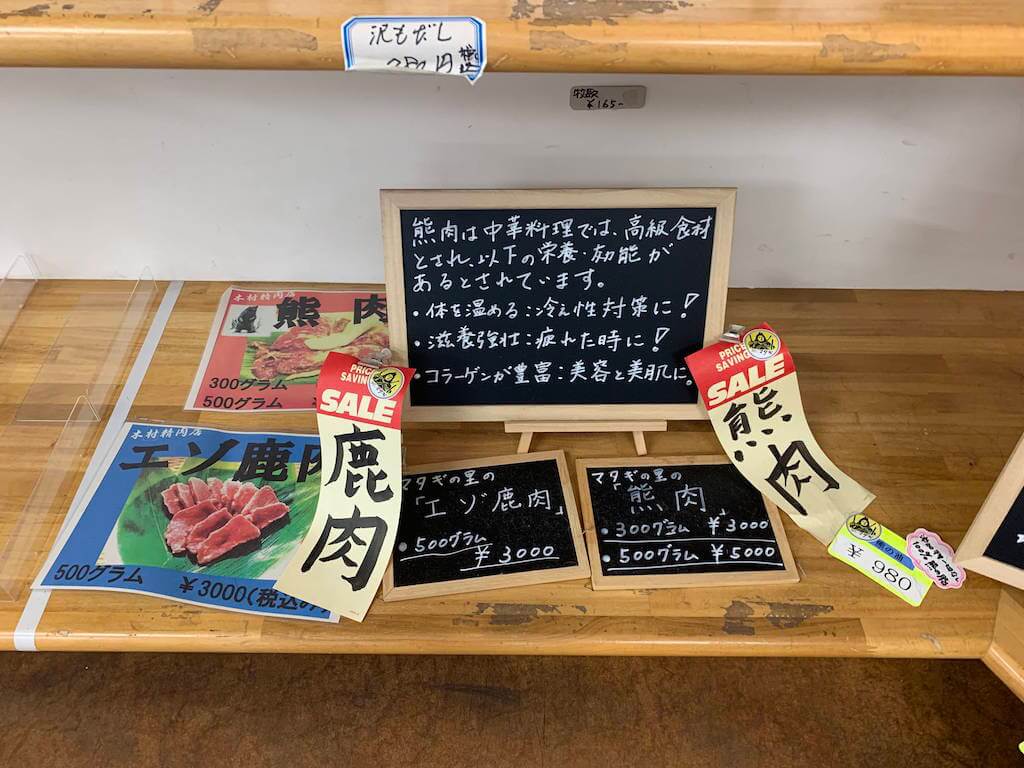 沢もだし
円
¥165-
熊肉は中華料理では、高級食材
とされ、以下の栄養・効能が
あるとされています。
・体を温める:冷え性対策に!
・滋養強壮:疲れた時に!
・コラーゲンが豊富:美容と美肌に。
木村精肉店
熊 肉
300グラム
500グラム
PRICE
SAVING
SALE
鹿肉
PRICE
SAVING
SALE
熊肉
木村精肉店
エゾ鹿肉
500グラム ¥3000(税込み)
マタギの里の
「エゾ鹿肉」
・500グラム
¥3000
マタギの里の
熊肉
・300グラム ¥3000
・500グラム ¥5000
980